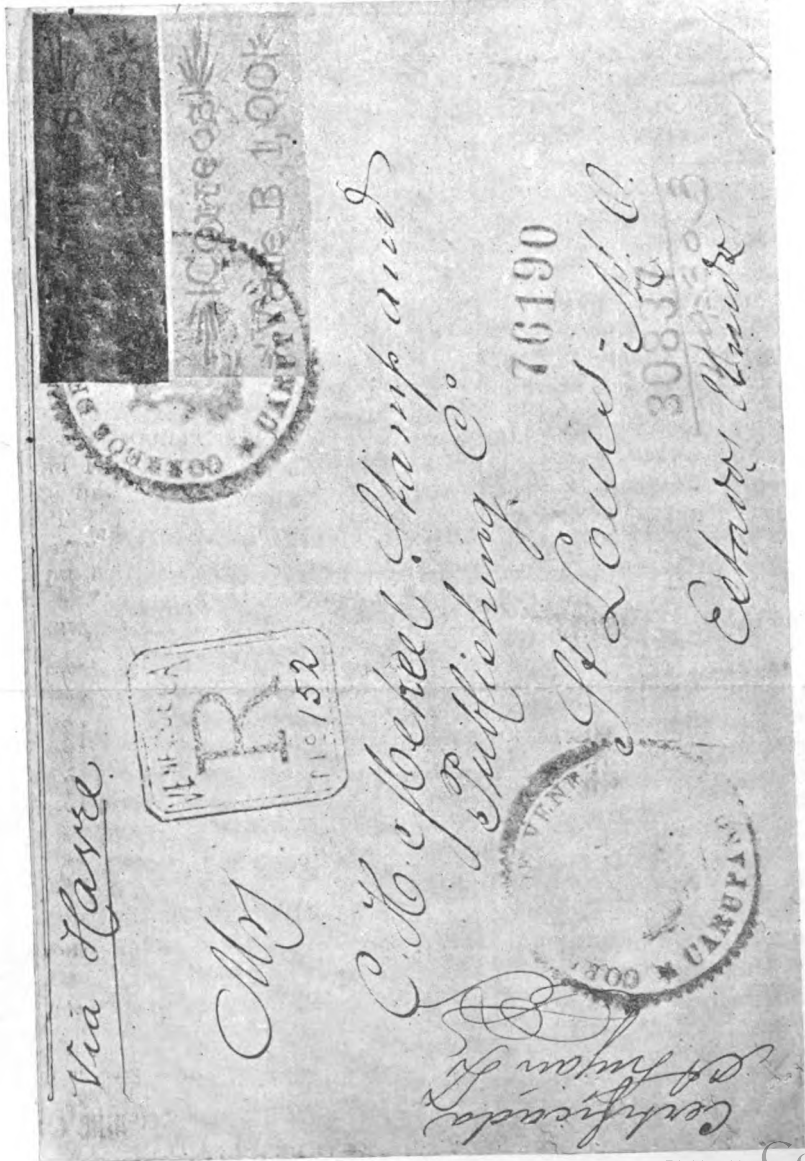 Via Havre
Correos
Vale B 1,00
CORREOS DE
CARUPANO
VENEZUELA
R
No 152
Mrs
C. H. Mekeel Stamp and
Publishing Co
76190
St Louis - M. O.
30837
Estados Unidos
CORREOS DE VENE
CARUPANO
Certificada